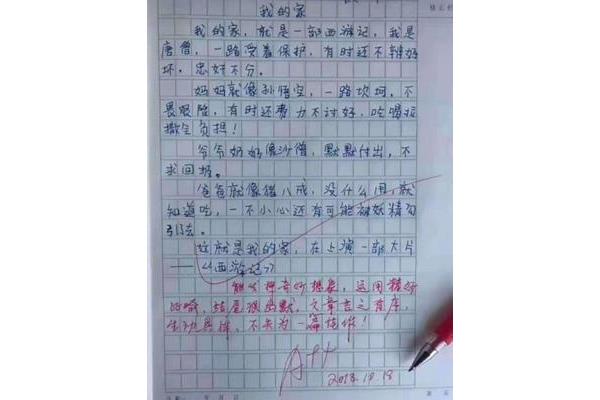 我的家
我的家，就是一部西游记，我是
唐僧，一路受着保护，有时还不辨好
坏，忠奸不分。
妈妈就像孙悟空，一路坎坷，不
畏艰险，有时还费力不讨好，吃喝拉
撒全负担！
爷爷奶奶像沙僧，默默付出，不
求回报。
爸爸就像猪八戒，没什么用，就
知道吃，一不小心还有可能被妖精勾
引去。
这就是我的家，在上演一部大片
——《西游记》
能发挥奇妙想象，运用精妙
比喻，结尾很幽默。文章言之有序，
生动具体，不失为一篇佳作！
A++
2018.10.18